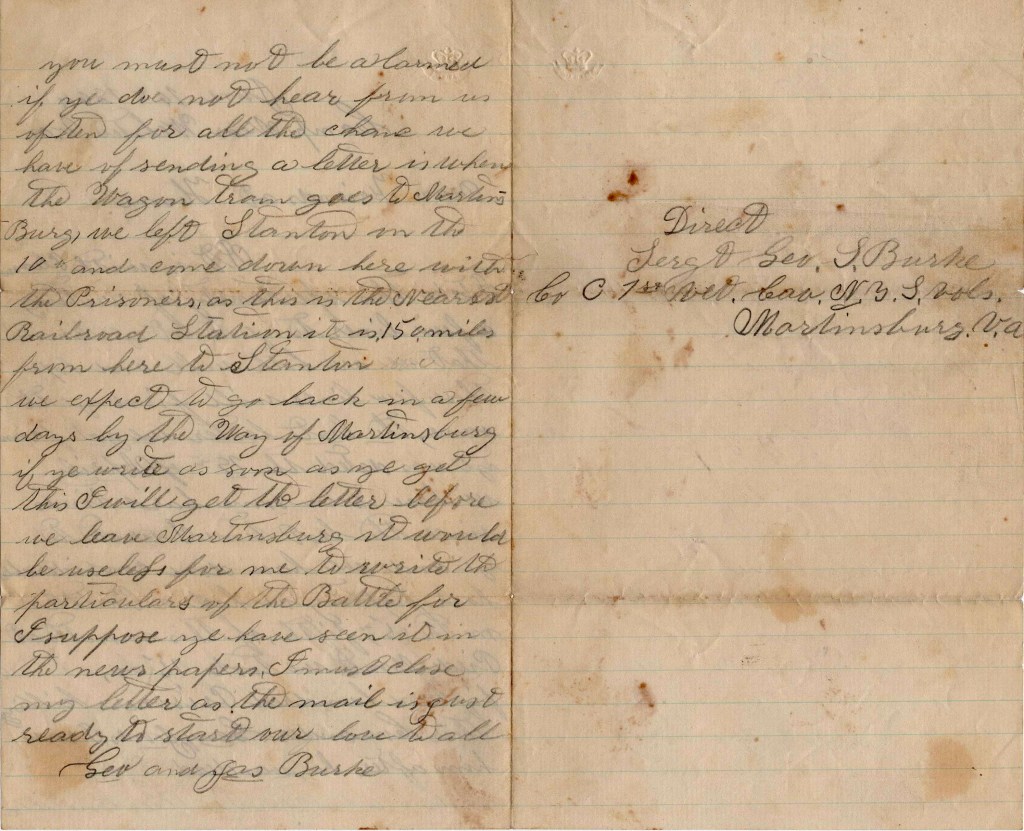 you must not be alarmed
if ye doe not hear from us
often for all the chanc we
have of sending a letter is when
the Wagon train goes to Martins
Burg, we left Stanton on the
10th and come down here with
the Prisoners, as this is the Nearest
Railroad Station it is, 150, miles
from here to Stanton
we expect to go back in a few
days by the Way of Martinsburg
if ye write as soon as ye get
this I will get the letter before
we leave Martinsburg it would
be useless for me to write the
particulars of the Battle for
I suppose ye have seen it in
the news papers, I must close
my letter as the mail is just
ready to start our love to all
Geo and Jas Burke
Direct
Sergt Geo. S. Burke
Co C 1st Vet. Cav. N.Y.S. vols.
Martinsburg. V.a